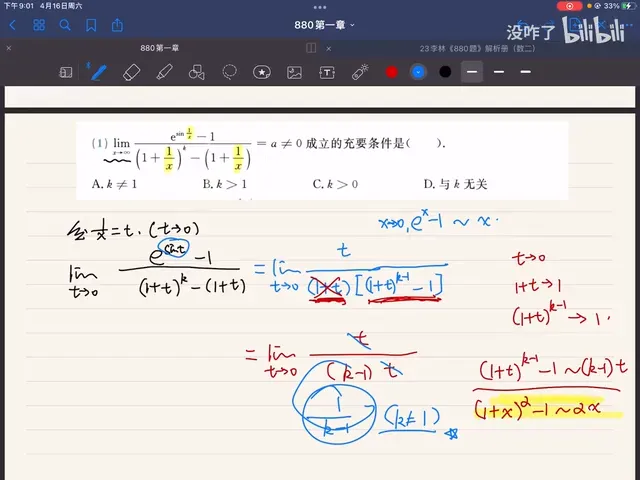 下午9:01 4月16日周六
880第一章
33%
没咋了 bilibili
880第一章
23李林《880题》解析册（数二）
(1) lim x→∞ (e^{sin 1/x} − 1) / ((1 + 1/x)^k − (1 + 1/x)) = a ≠ 0 成立的充要条件是( ).
A. k ≠ 1 B. k > 1 C. k > 0 D. 与 k 无关
令 1/x = t. (t→0)
x→0, e^x − 1 ~ x.
lim t→0 (e^{sin t} − 1) / ((1+t)^k − (1+t)) = lim t→0 t / ((1+t)[(1+t)^{k−1} − 1])
t→0
1+t → 1
(1+t)^{k−1} → 1.
= lim t→0 t / ((k−1) t)
(1+t)^{k−1} − 1 ~ (k−1) t
1/(k−1) (k≠1)
(1+x)^α − 1 ~ αx